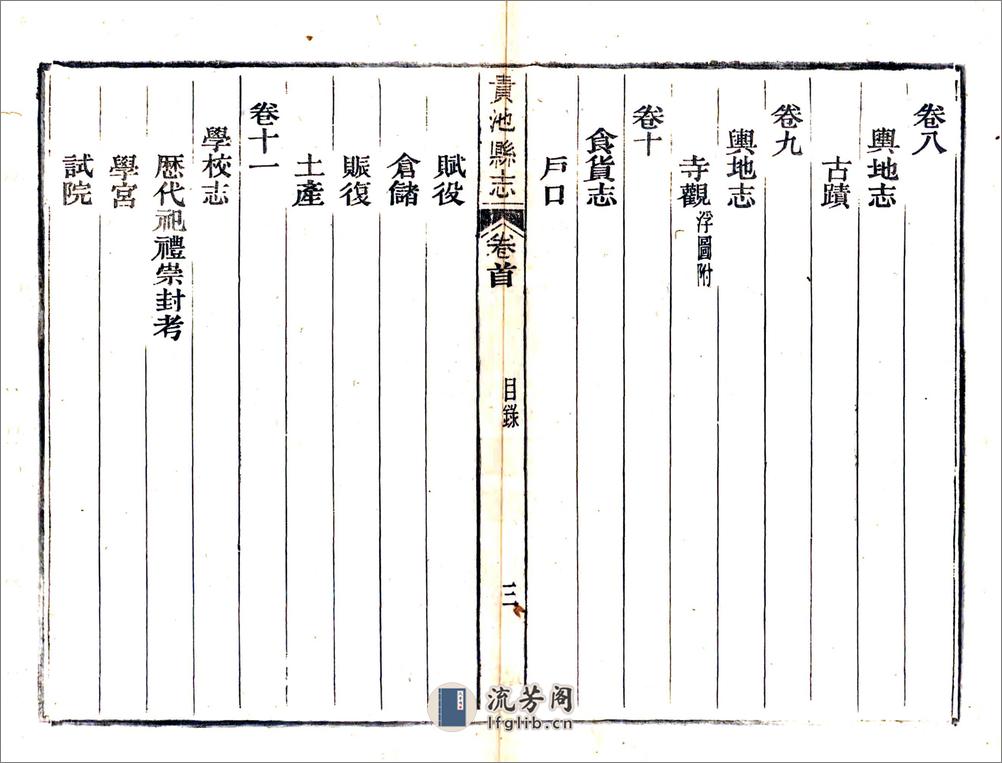 卷八
輿地志
古蹟
卷九
輿地志
寺觀浮圖附
卷十
食貨志
戶口
貴池縣志
卷首
目錄
三
賦役
倉儲
賑復
土產
卷十一
學校志
歷代祀禮崇封考
學宮
試院
流芳阁
lfglib.cn